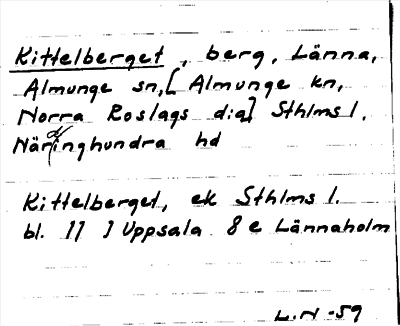 Kittelberget, berg, Länna,
Almunge sn, [Almunge kn,
Norra Roslags d:a] Sthlms l.
Närdinghundra hd
Kittelberget, ek Sthlms l.
bl. 77 1 Uppsala 8 e Lännaholm
L.N -59